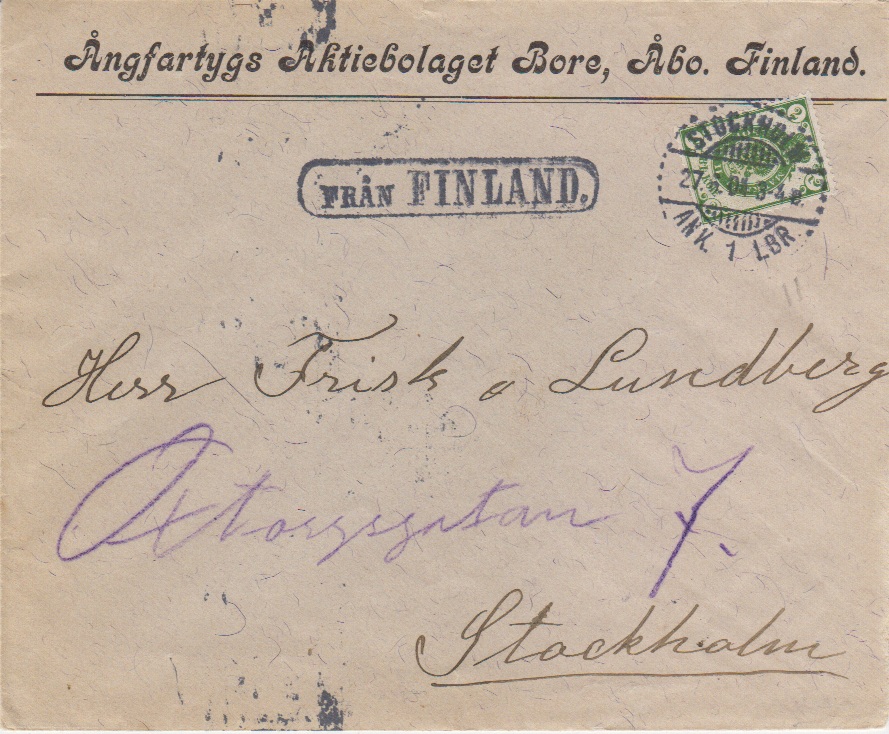 Ångfartygs Aktiebolaget Bore, Åbo. Finland.
FRÅN FINLAND.
STOCKHOLM
27
04 3-4
ANK. 1 LBR
2
2
11
Herr Frisk o Lundberg
Oxtorgsgatan 7.
Stockholm